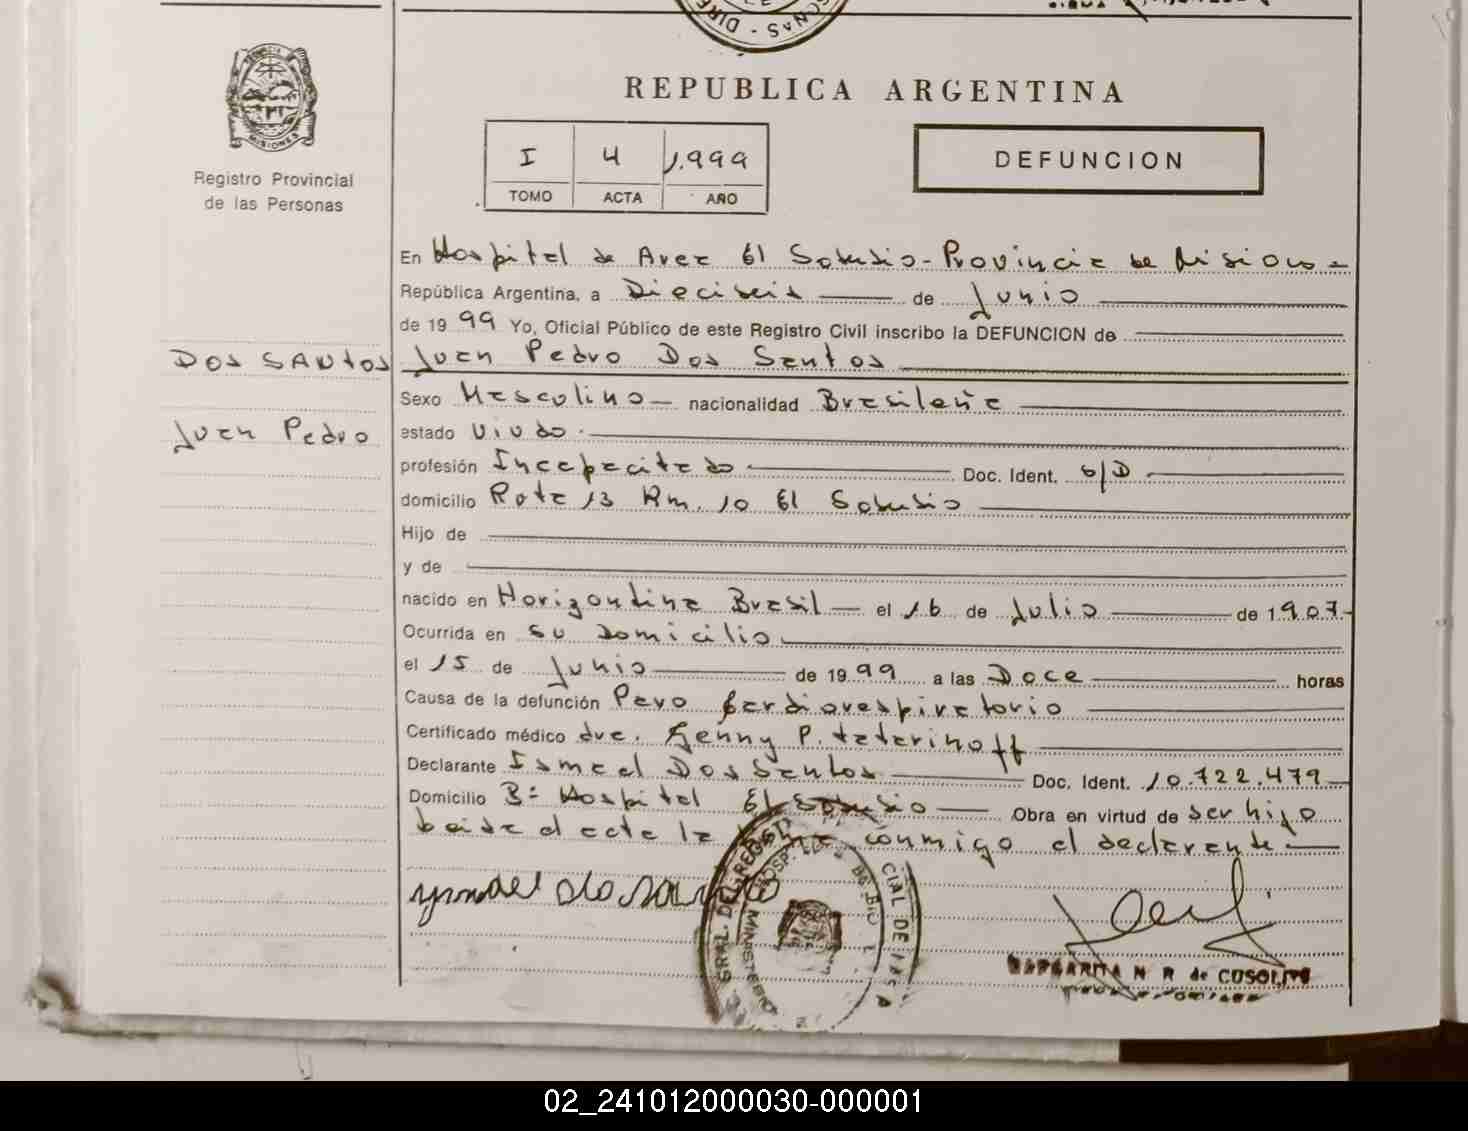 REPUBLICA ARGENTINA
PROVINCIA DE MISIONES
Registro Provincial
de las Personas
I 4 1.999
TOMO ACTA AÑO
DEFUNCION
En Hospital de Area El Soberbio - Provincia de Misiones
República Argentina, a Dieciseis de Junio
de 19 99 Yo, Oficial Público de este Registro Civil inscribo la DEFUNCION de
DOS SANTOS Juan Pedro Dos Santos
Sexo Masculino nacionalidad Brasileña
Juan Pedro
estado Viudo
profesión Incapacitado Doc. Ident. S/D
domicilio Ruta 13 Km. 10 El Soberbio
Hijo de
y de
nacido en Horizontina Brasil el 16 de Julio de 1907
Ocurrida en su Domicilio
el 15 de Junio de 19 99 a las Doce horas
Causa de la defunción Paro Cardiorespiratorio
Certificado médico dra. Genny P. Tatarinoff
Declarante Ismael Dos Santos Doc. Ident. 10.722.479
Domicilio Bº Hospital El Soberbio Obra en virtud de ser hijo
leida el acta la firma conmigo el declarante
Ismael do Santo
GRAL. DEL REGIST
CIAL DE LAS P
HOSP.
MINISTERIO
MARGARITA N. R. de CUSOLITO
02_241012000030-000001